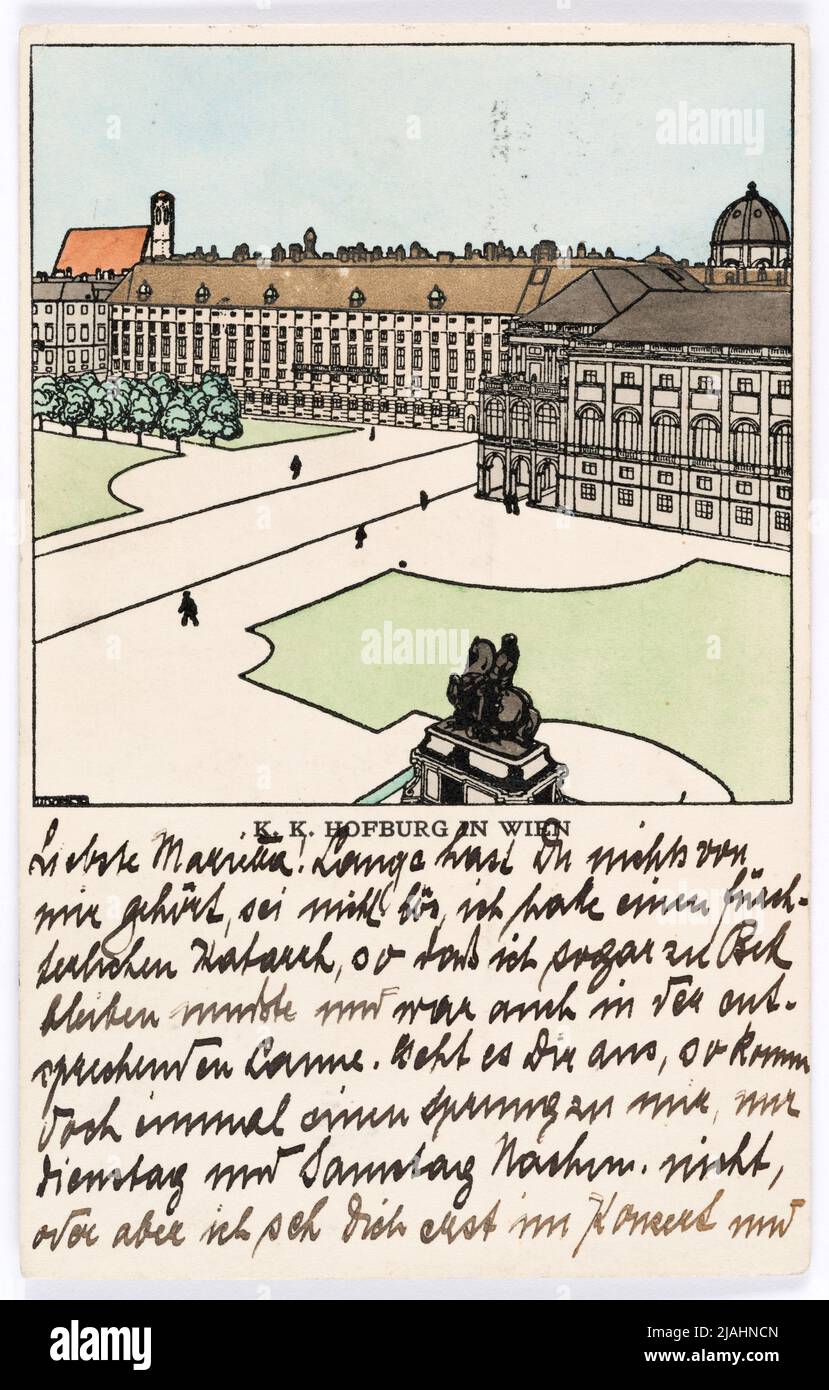 K. K. HOFBURG IN WIEN
Liebste Marietta! Lange hast Du nichts von
mir gehört, sei nicht bös, ich habe einen fürch-
terlichen Katarrh, so daß ich sogar zu Bett
bleiben mußte und war auch in der ent-
sprechenden Laune. Geht es Dir aus, so komm
doch einmal einen Sprung zu mir, nur
Dienstag und Samstag Nachm. nicht,
oder aber ich seh Dich erst im Konzert und
alamy
alamy
Image ID: 2JAHNCN
www.alamy.com